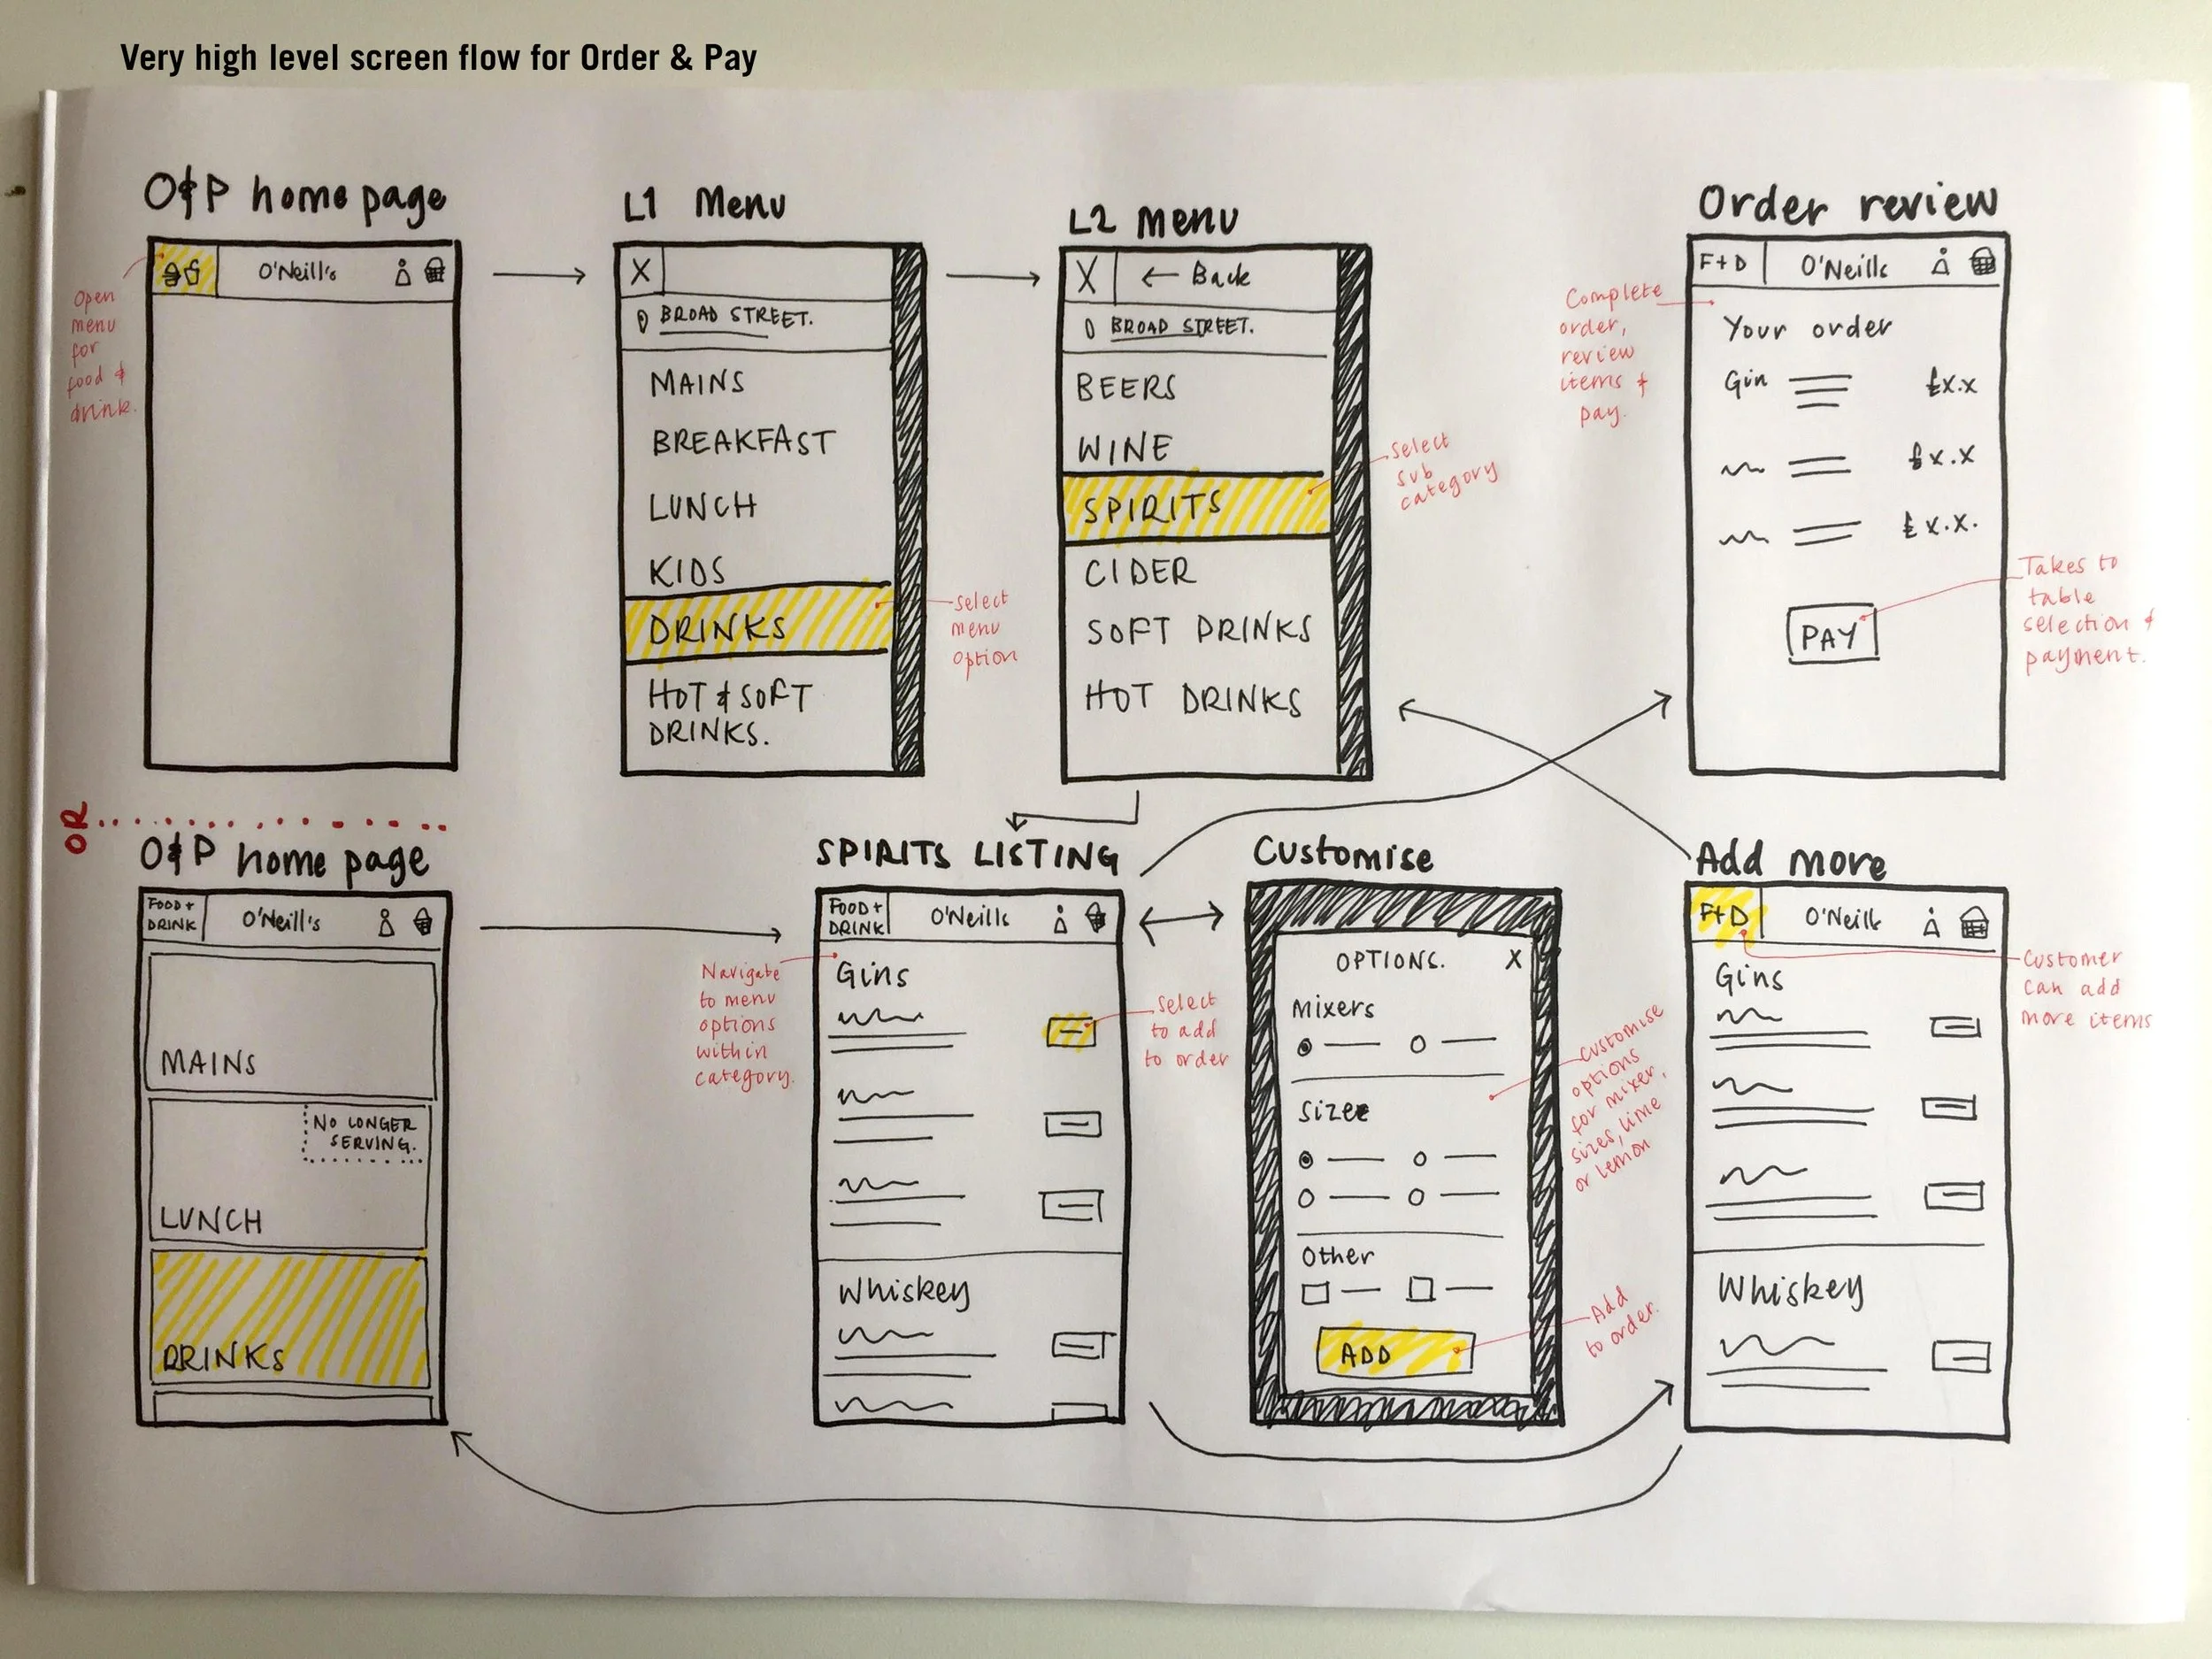 Very high level screen flow for Order & Pay
O&P home page
O'Neill's
Open
menu
for
food &
drink.
L1 Menu
X
BROAD STREET.
MAINS
BREAKFAST
LUNCH
KIDS
DRINKS
HOT & SOFT
DRINKS.
select
menu
option
L2 menu
X ← Back
BROAD STREET.
BEERS
WINE
SPIRITS
CIDER
SOFT DRINKS
HOT DRINKS
select
sub
category
Order review
F+D O'Neills
Complete
order,
review
items &
pay.
Your order
Gin £x.x
£x.x
£x.x.
PAY
Takes to
table
selection &
payment.
OR
O&P home page
FOOD +
DRINK O'Neill's
MAINS
NO LONGER
SERVING.
LUNCH
DRINKS
SPIRITS LISTING
FOOD +
DRINK O'Neills
Navigate
to menu
options
within
category.
Gins
select
to add
to order
Whiskey
Customise
OPTIONS. X
Mixers
Sizes
Other
ADD
customise
options
for mixer,
sizes, lime
or lemon
Add
to order.
Add more
F+D O'Neills
Gins
Whiskey
Customer
can add
more items